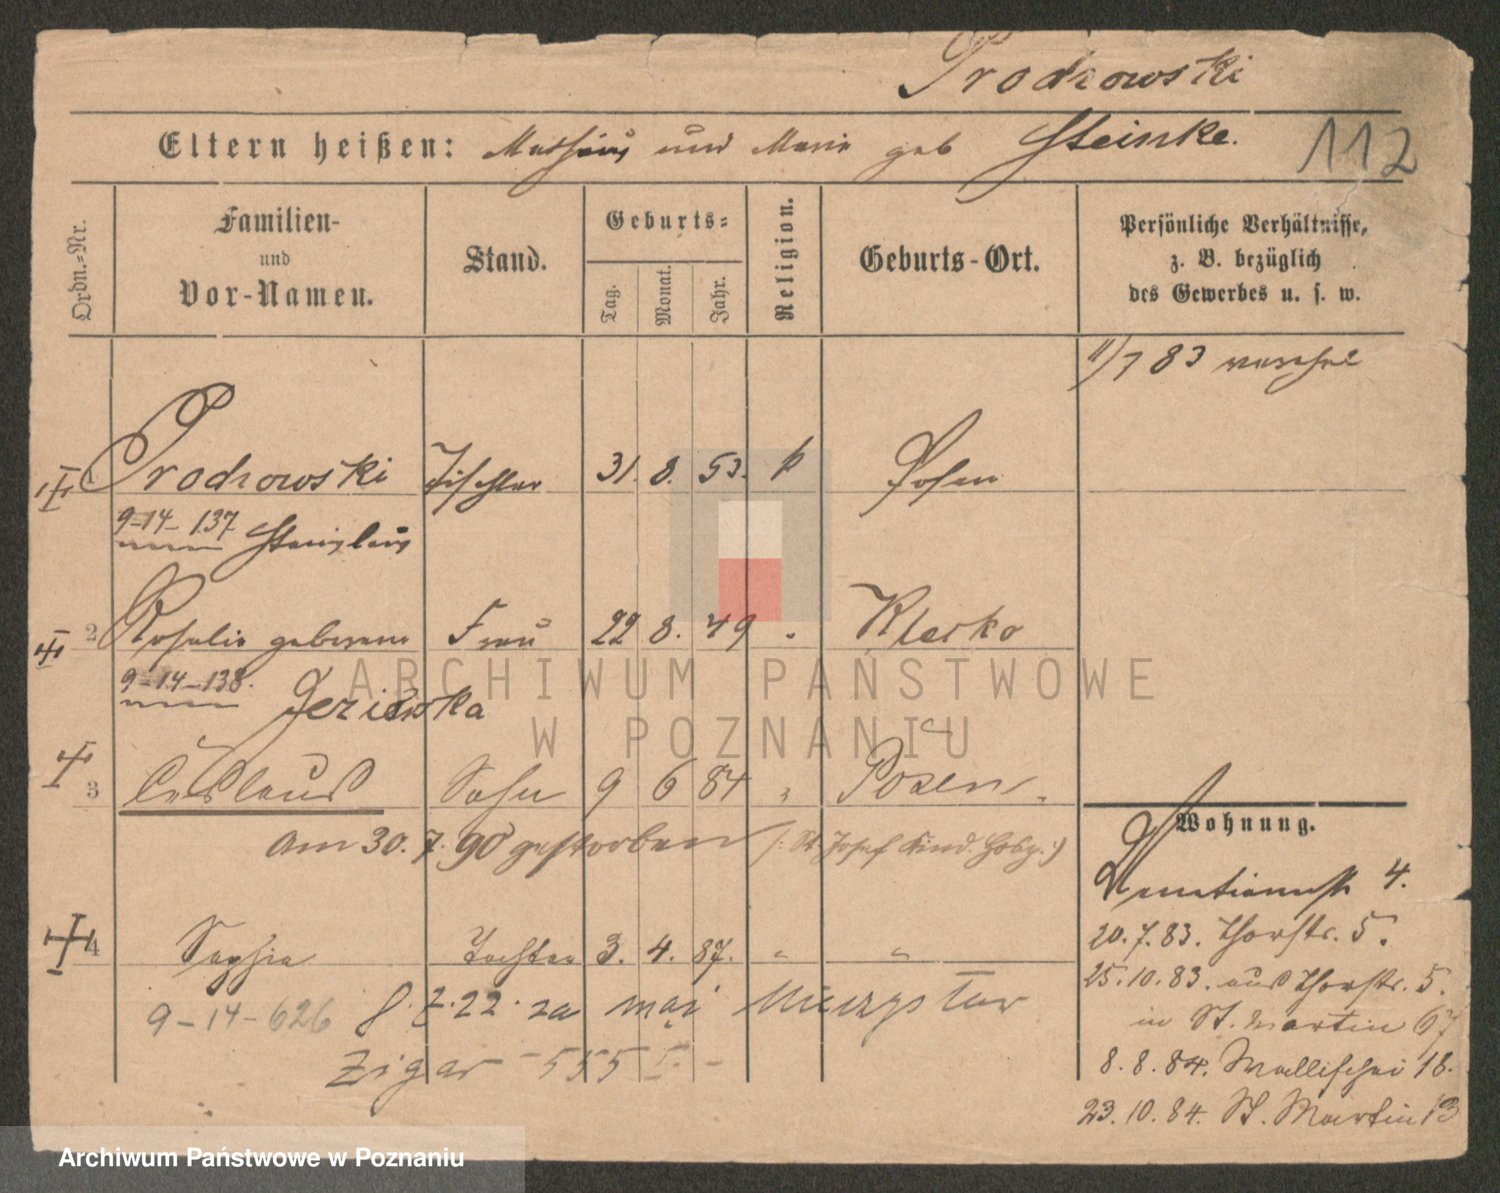 Prodrowski
Eltern heißen: Mathäus und Marie geb Steinke.
112
Ordn.=Nr.
Familien-
und
Vor-Namen.
Stand.
Geburts=
Tag.
Monat.
Jahr.
Religion.
Geburts-Ort.
Persönliche Verhältnisse,
z. B. bezüglich
des Gewerbes u. s. w.
11/7 83
Prodrowski Tischler 31. 8. 53. k Posen
9-14-137 Stanislaus
2 Rosalie geborene Frau 22 8. 49 " Klecko
9-14-138.
3 Ceslaus Sohn 9 6 84 " Posen.
am 30. 7. 90 gestorben (: St. Josef Kind. Hosp. :)
4 Sophia Tochter 3. 4. 87. " "
9-14-626 8. 2. 22. za mąż
Zigar - 555
Wohnung.
4.
20. 7. 83. Thorstr. 5.
25. 10. 83. aus Thorstr. 5.
in St. Martin 67
8. 8. 84. Wallischei 18.
23. 10. 84. St. Martin 13
ARCHIWUM PAŃSTWOWE
W POZNANIU
Archiwum Państwowe w Poznaniu